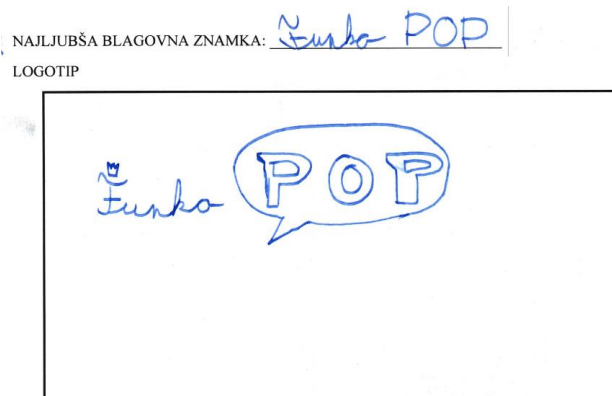 NAJLJUBŠA BLAGOVNA ZNAMKA: Funko POP
LOGOTIP
Funko POP